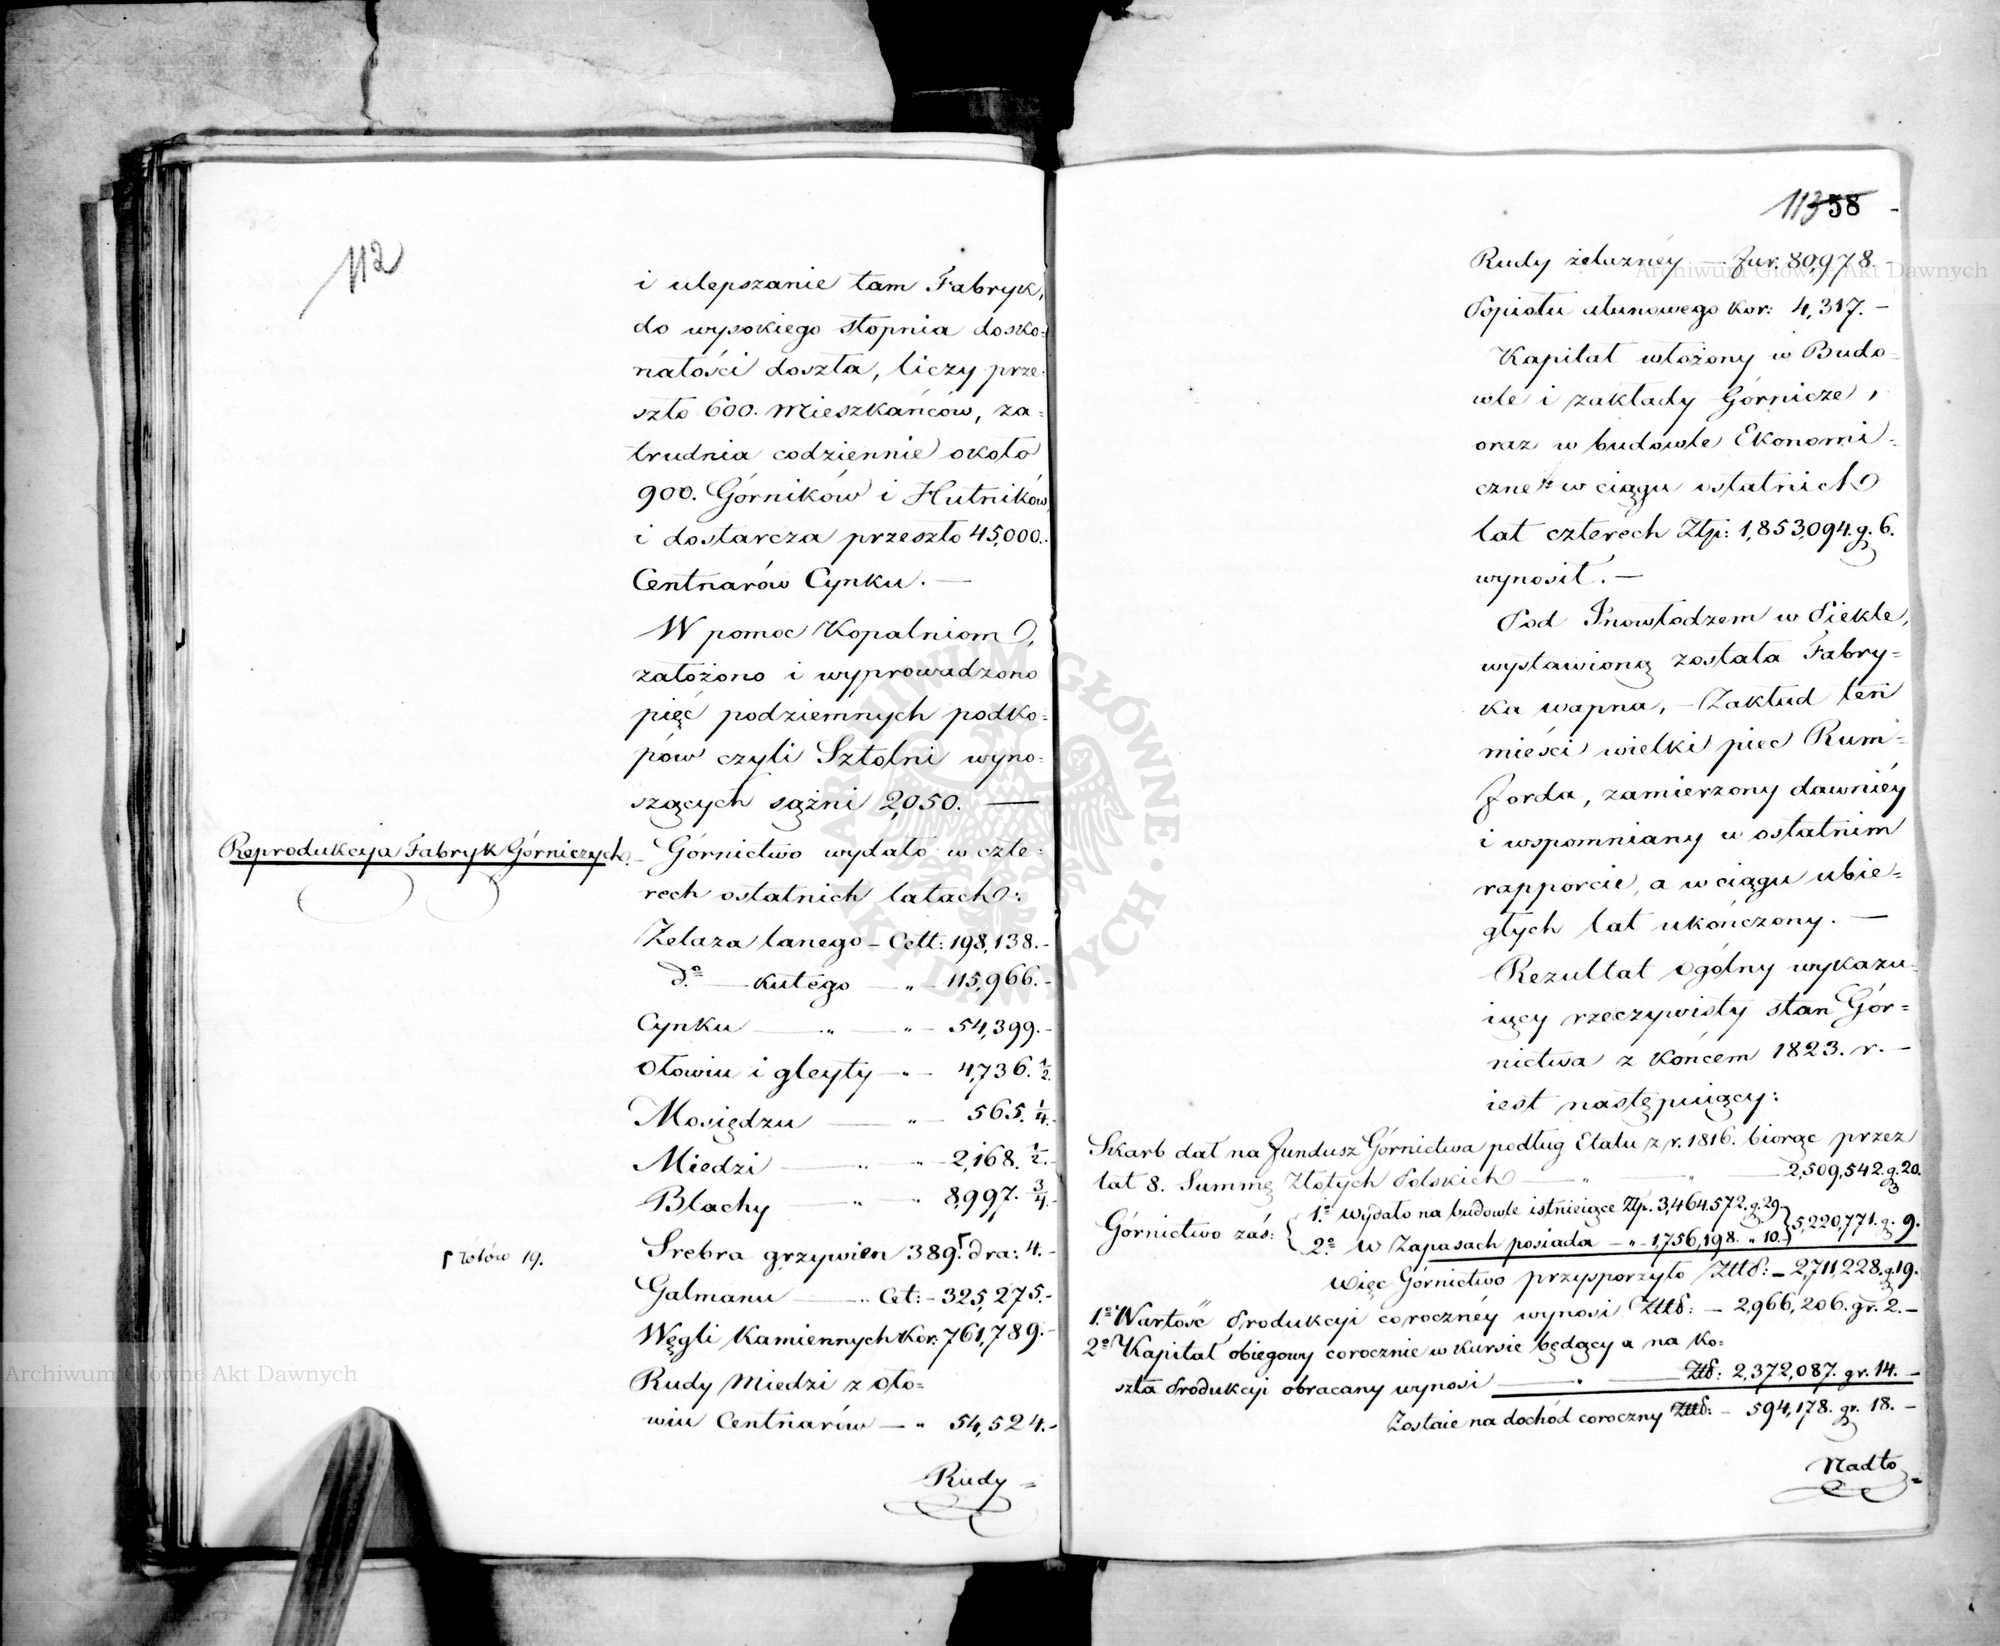 112
i ulepszanie tam Fabryk,
do wysokiego stopnia dosko=
nałości doszła, liczy prze=
szło 600. Mieszkańców, za=
trudnia codziennie około
900. Górników i Hutników,
i dostarcza przeszło 45,000.-
Centnarów Cynku. —
W pomoc Kopalniom,
założono i wyprowadzono
pięć podziemnych podko=
pów czyli Sztolni wyno=
szących sążni 2,050. —
Reprodukcyja Fabryk Górniczych.
Górnictwo wydało w czte=
rech ostatnich latach:
Żelaza lanego — Cett: 198,138.-
do — kutégo — „ — 115,966.-
Cynku — „ — „ — 54,399.-
Ołowiu i gleyty — „ — 4,736. 1/2.
Mosiędzu — „ — 565. 1/4.
Miedzi — „ — „ — 2,168. 1/2.-
Blachy — „ — „ — 8,997. 3/4.-
Srebra grzywien 389.⌈ dra: 4.-
⌈ łótów 19.
Galmanu — „ Cet: - 325,275.-
Węgli Kamiennych Kor: 761,789.-
Rudy Miedzi z oło=
wiu Centnarów — „ 54,524.-
Rudy =
113 58
Rudy żelaznéy — Fur. 80978 -
Popiołu ałunowego Kor: 4,317. —
Kapitał włożony w Budo=
wle i zakłady Górnicze,
oraz w budowle Ekonomi=
czne w ciągu ostatnich
lat czterech Złp: 1,853,094. g. 6.
wynosił. —
Pod Inowłodzem w Piekle,
wystawioną została Fabry=
ka wapna, — Zakład ten
mieści wielki piec Rum=
forda, zamierzony dawniéy
i wspomniany w ostatnim
rapporcie, a w ciągu ubie=
głych lat ukończony. —
Rezultat ogólny wykazu=
iący rzeczywisty stan Gór=
nictwa z końcem 1823. r. —
iest następuiący:
Skarb dał na fundusz Górnictwa podług Etatu z r. 1816. biorąc przez
lat 8. Summę Złotych Polskich — „ — „ — 2,509,542. g. 20.
Górnictwo zaś: { 1.o Wydało na budowle istnieiące Złp. 3,464,572. g. 29
2.o W Zapasach posiada — „ - 1,756,198. „ 10. } 5,220,771. g. 9.
więc Górnictwo przysporzyło Złtp: — 2,711,228. g. 19.
1.o Wartość Produkcyi corocznéy wynosi Złtp: — 2,966,206. gr. 2. —
2.o Kapitał obiegowy corocznie w kursie będący a na ko=
szta Produkcyi obracany wynosi — „ — Złp: 2,372,087. gr. 14. —
Zostaie na dochód coroczny Złtp: — 594,178. gr. 18. —
Nadto =
Archiwum Główne Akt Dawnych
Archiwum Główne Akt Dawnych
ARCHIWUM GŁÓWNE AKT DAWNYCH